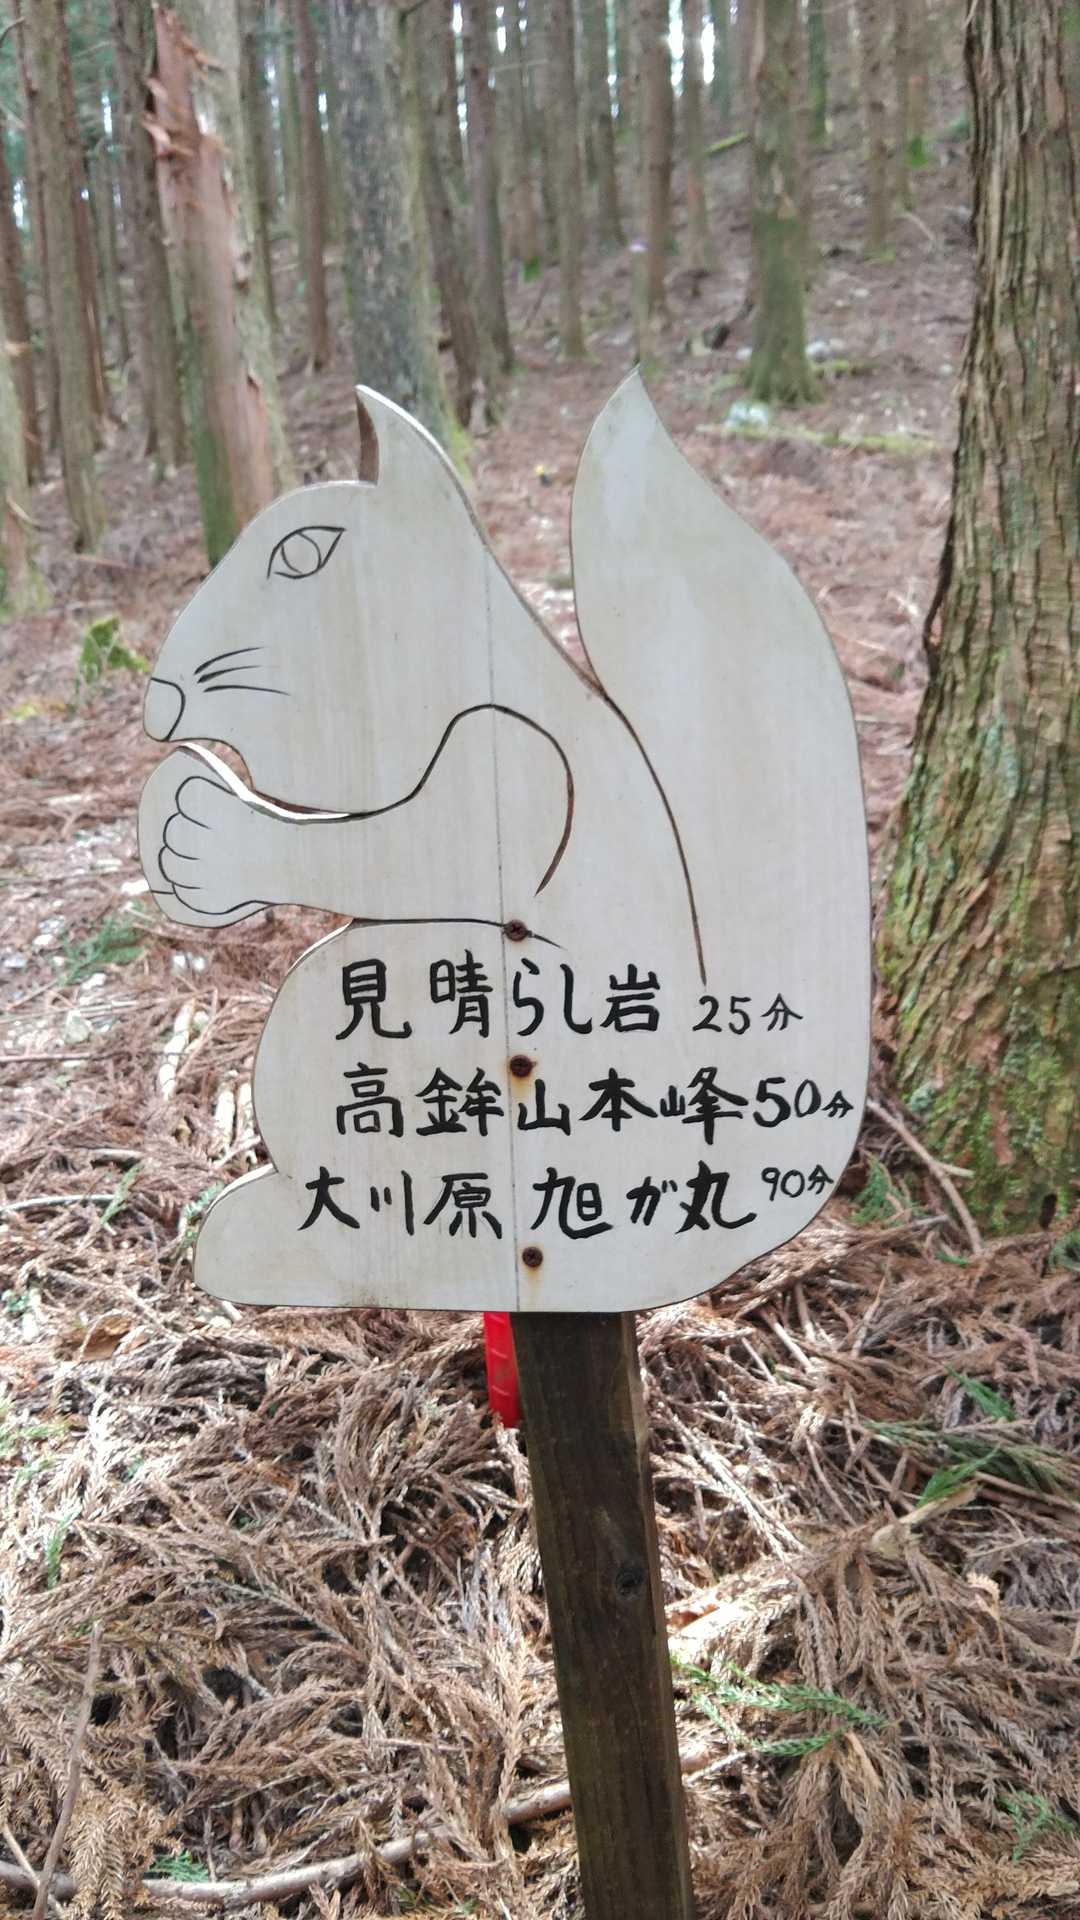 見晴らし岩 25分
高鉾山本峰50分
大川原 旭が丸 90分